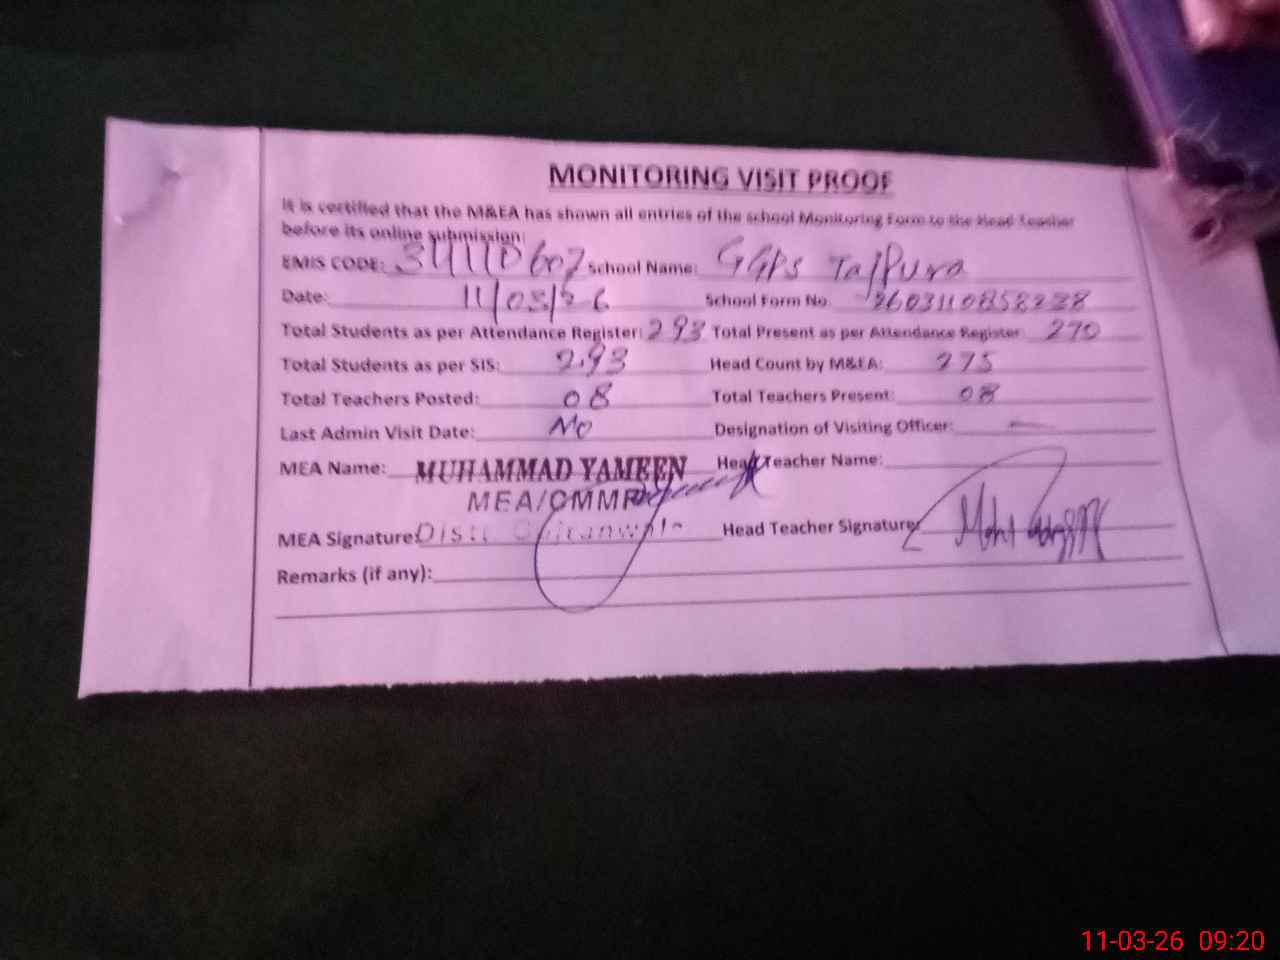 MONITORING VISIT PROOF
It is certified that the M&EA has shown all entries of the school Monitoring Form to the Head Teacher
before its online submission:
EMIS CODE: 34110607 School Name: GGPS Tajpura
Date: 11/03/26 School Form No. 2603110858238
Total Students as per Attendance Register: 293 Total Present as per Attendance Register: 270
Total Students as per SIS: 293 Head Count by M&EA: 275
Total Teachers Posted: 08 Total Teachers Present: 08
Last Admin Visit Date: No Designation of Visiting Officer: —
MEA Name: MUHAMMAD YAMEEN Head Teacher Name:
MEA/CMMF
MEA Signature: Distt Gujranwala Head Teacher Signature:
Remarks (if any):
11-03-26 09:20